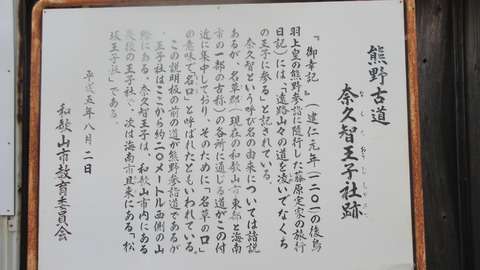 熊野古道
奈久智王子社跡
なくちおうじしゃあと
『御幸記』(建仁元年(一二〇一)の後鳥
羽上皇の熊野参詣に随行した藤原定家の旅行
日記)には、「遠路山々の道を凌いでなくち
の王子に参る」と記されている。
奈久智という呼び名の由来については諸説
あるが、名草郡(現在の和歌山市東部と海南
市の一部の古称)の各所に通じる道がこの付
近に集中しており、そのために「名草の口」
の意味で名口」と呼ばれたともいわれている。
この説明板の前の道が熊野参詣道であるが
王子社はここから約二〇メートル西側の山
際にある。奈久智王子は、和歌山市内にある
最後の王子社で、次は海南市且来にある「松
坂王子社」である。
平成五年八月二日
和歌山市教育委員会